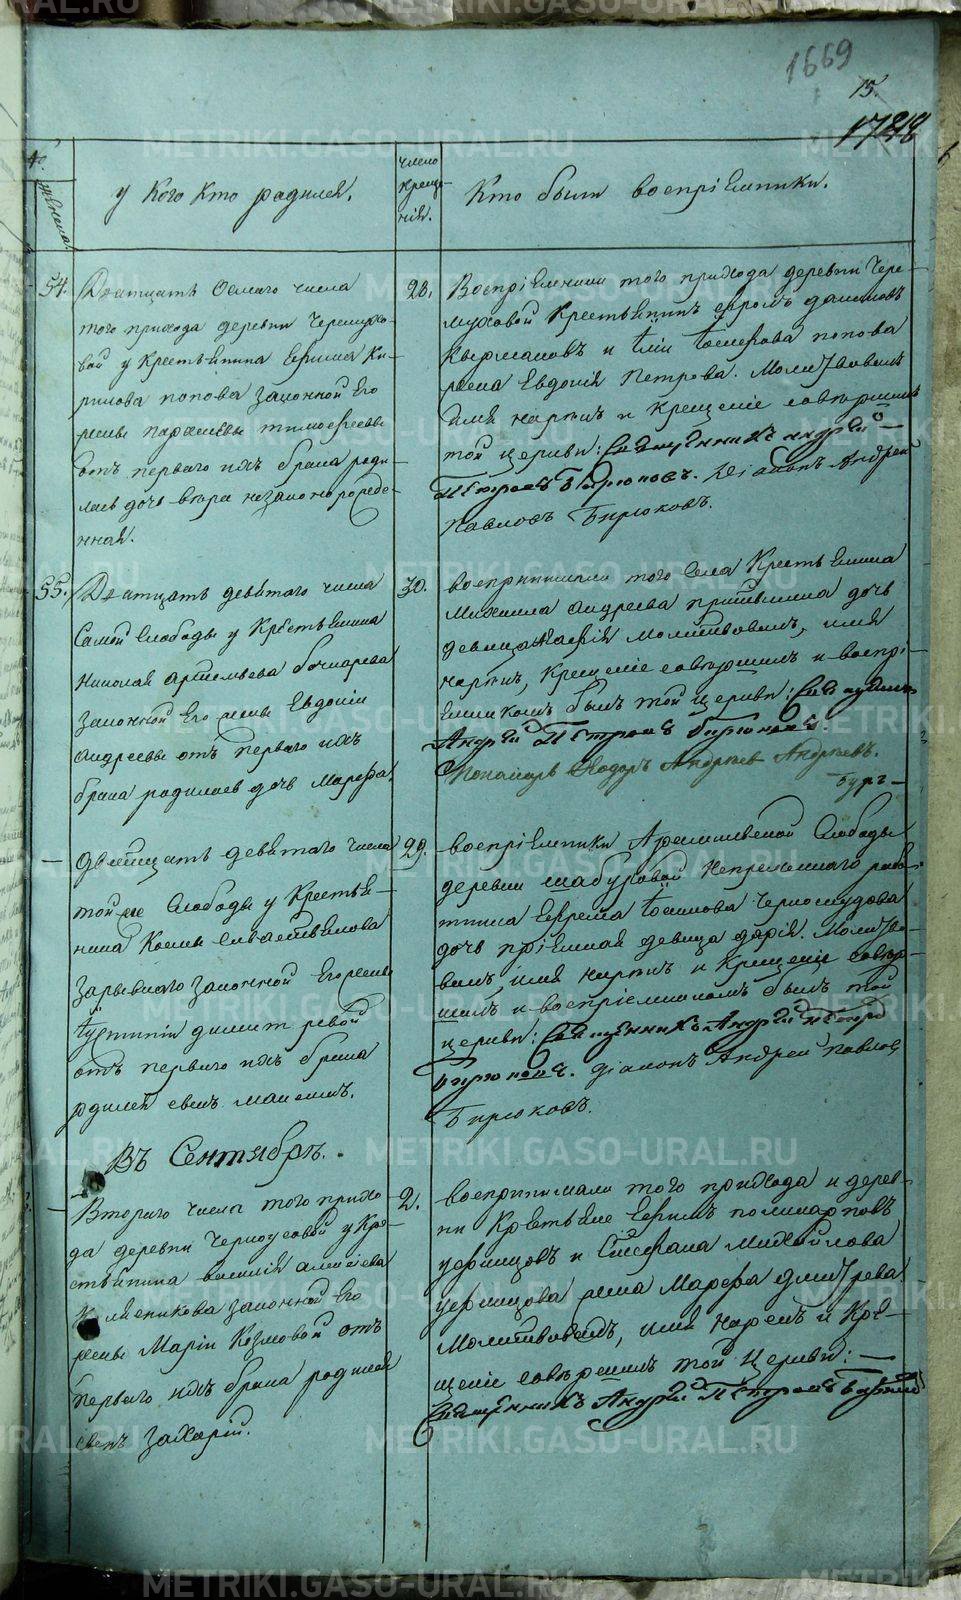 1669
15.
Женска.
у кого кто родился.
число
креще-
нія.
Кто были воспріемники.
54.
Дватцать Осмаго числа
того прихода деревни Черемухо-
вой у Крестьянина Ефима Ки-
рилова попова законной Его
жены Парасковьи тимофеевы
отъ перваго ихъ брака роди-
лась дочь вѣра незаконорожде-
нная.
28.
Воспріемники того прихода деревни Чере-
муховой Крестьянинъ
и попова
жена Евдокія Петрова. Молитвовалъ
имя нарекъ и Крещеніе совершилъ
той церкви: Священникъ Андрей
Петровъ Бирюковъ. Діаконъ Андрей
Павловъ Бирюковъ.
55.
Дватцать девятого числа
Самой Слободы у Крестьянина
Николая Артемьева бочкарева
законной Его жены Евдокіи
Андреевы отъ перваго ихъ
брака родилась дочь Марѳа.
30.
воспринимали того Села Крестьянина
Михаила Андреева дочь
девица Марія молитвовалъ, имя
нарекъ, Крещеніе совершилъ и воспрі-
емникомъ былъ той церкви: Священникъ
Андрей Петровъ бирюковъ.
Пономарь Ѳедоръ Андреевъ
дватцать девятого числа
той-же Слободы у Крестья-
нина Козмы
законной Его жены
отъ перваго ихъ брака
родился сынъ
29.
воспріемники Слободы
деревни шабуровой Непременнаго рабо-
тника Ефрема Черноскудова
дочь пріемная девица дарія. Молитво-
валъ, имя нарекъ и Крещеніе совер-
шилъ и воспріемникомъ былъ той
церкви: Священникъ Андрей Петровъ
Бирюковъ. діаконъ Андрей Павловъ
Бирюковъ.
Въ Сентябрѣ.
Втораго числа того прихо-
да деревни Черноусовой у Кре-
стьянина василія алексѣева
законной Его
жены Маріи Козмовой отъ
перваго ихъ брака родился
сынъ Захарій.
2.
воспринимали того прихода и дерев-
ни Крестьяне Ефимъ поликарповъ
черницовъ и Стефана Михайлова
черницова жена Марѳа дмитрева
Молитвовалъ, имя нарекъ и Кре-
щеніе совершилъ той Церкви:
Священникъ Андрей Петровъ Бирюковъ
METRIKI.GASO-URAL.RU